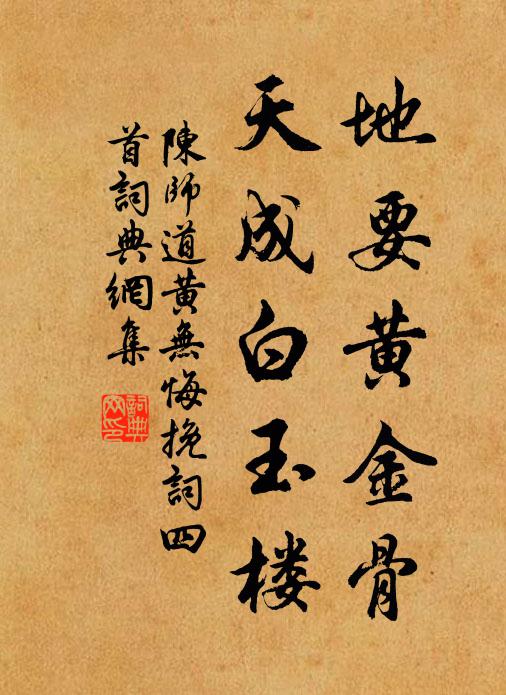 地要黄金骨
天成白玉楼
陳師道黄無悔挽詞四
首詞典網集
詞典
网印